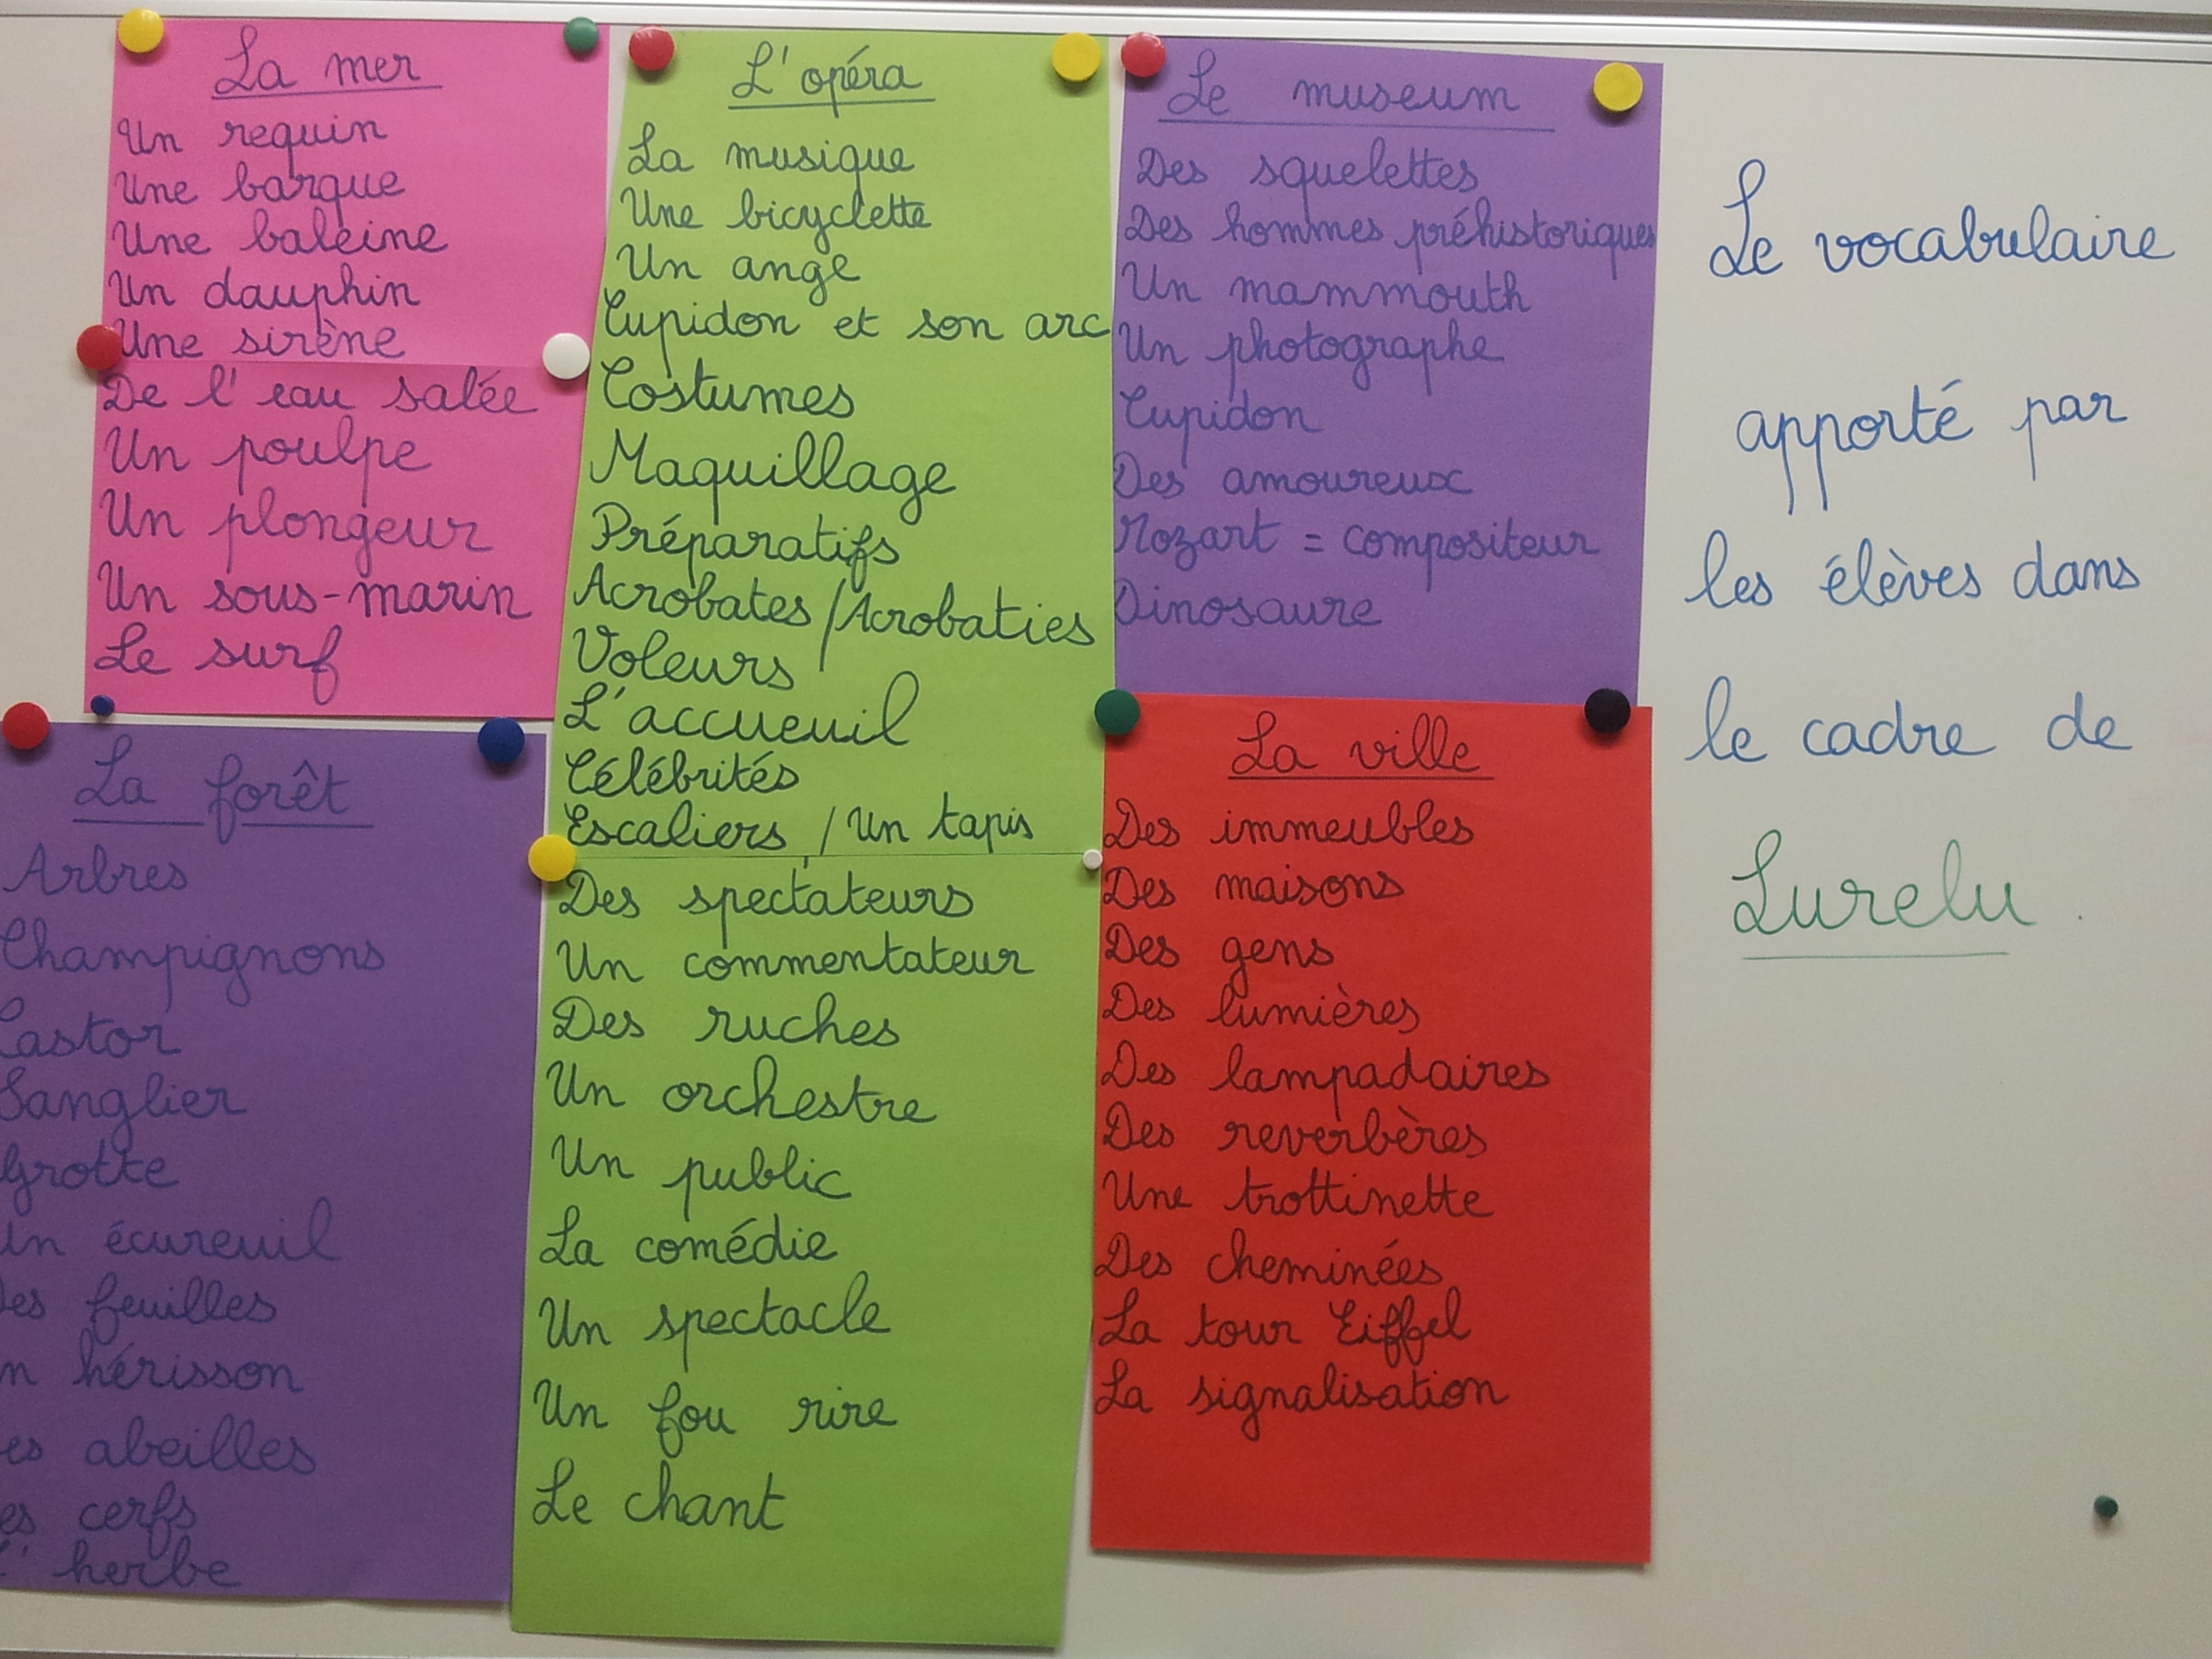 La mer
Un requin
Une barque
Une baleine
Un dauphin
Une sirène
De l'eau salée
Un poulpe
Un plongeur
Un sous-marin
Le surf
L'opéra
La musique
Une bicyclette
Un ange
Cupidon et son arc
Costumes
Maquillage
Préparatifs
Acrobates / Acrobaties
Voleurs
L'accueuil
Célébrités
Escaliers / Un tapis
Des spectateurs
Un commentateur
Des ruches
Un orchestre
Un public
La comédie
Un spectacle
Un fou rire
Le chant
Le museum
Des squelettes
Des hommes préhistoriques
Un mammouth
Un photographe
Cupidon
Des amoureux
Mozart = compositeur
Dinosaure
La forêt
Arbres
Champignons
Castor
Sanglier
Grotte
Un écureuil
Des feuilles
un hérisson
es abeilles
es cerfs
L'herbe
La ville
Des immeubles
Des maisons
Des gens
Des lumières
Des lampadaires
Des reverbères
Une trottinette
Des cheminées
La tour Eiffel
La signalisation
Le vocabulaire
apporté par
les élèves dans
le cadre de
Lurelu.